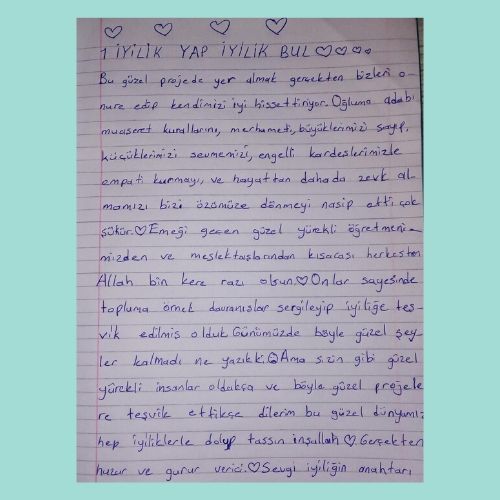 1 İYİLİK YAP İYİLİK BUL ♡♡♡♡
Bu güzel projede yer almak gerçekten bizleri o-
nure edip kendimizi iyi hissettiriyor. Oğluma adabı
muaşeret kurallarını, merhameti, büyüklerimizi sayıp,
küçüklerimizi sevmemizi, engelli kardeşlerimizle
empati kurmayı, ve hayattan dahada zevk al-
mamızı bizi özümüze dönmeyi nasip etti çok
şükür.♡Emeği geçen güzel yürekli öğretmeni-
mizden ve meslektaşlarından kısacası herkesten
Allah bin kere razı olsun.♡Onlar sayesinde
topluma örnek davranışlar sergileyip iyiliğe teş-
vik edilmiş olduk Günümüzde böyle güzel şey-
ler kalmadı ne yazıkki☹Ama sizin gibi güzel
yürekli insanlar oldukça ve böyle güzel projele
re teşvik ettikçe dilerim bu güzel dünyamız
hep iyiliklerle dolup taşsın inşullah ♡.Gerçekten
huzur ve gurur verici.♡Sevgi iyiliğin anahtarı